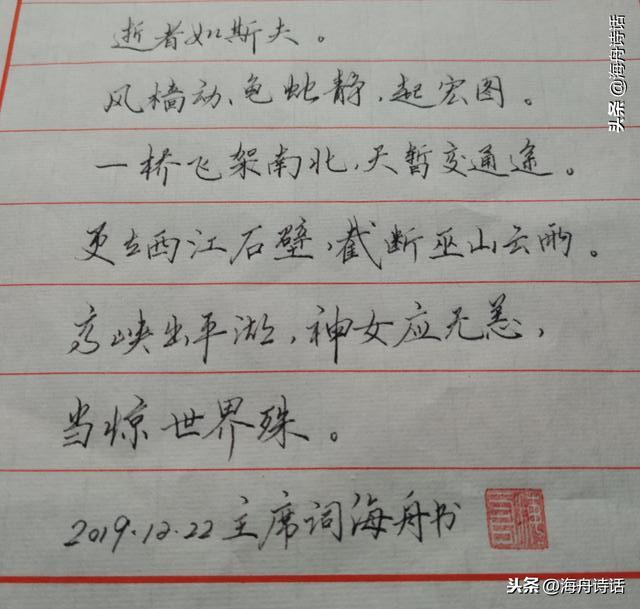 逝者如斯夫。
风樯动、龟蛇静,起宏图。
一桥飞架南北,天暂变通途。
更立西江石壁,截断巫山云雨。
高峡出平湖,神女应无恙,
当惊世界殊。
2019.12.22 主席词海舟书
头条 @海舟诗话
头条 @海舟诗话